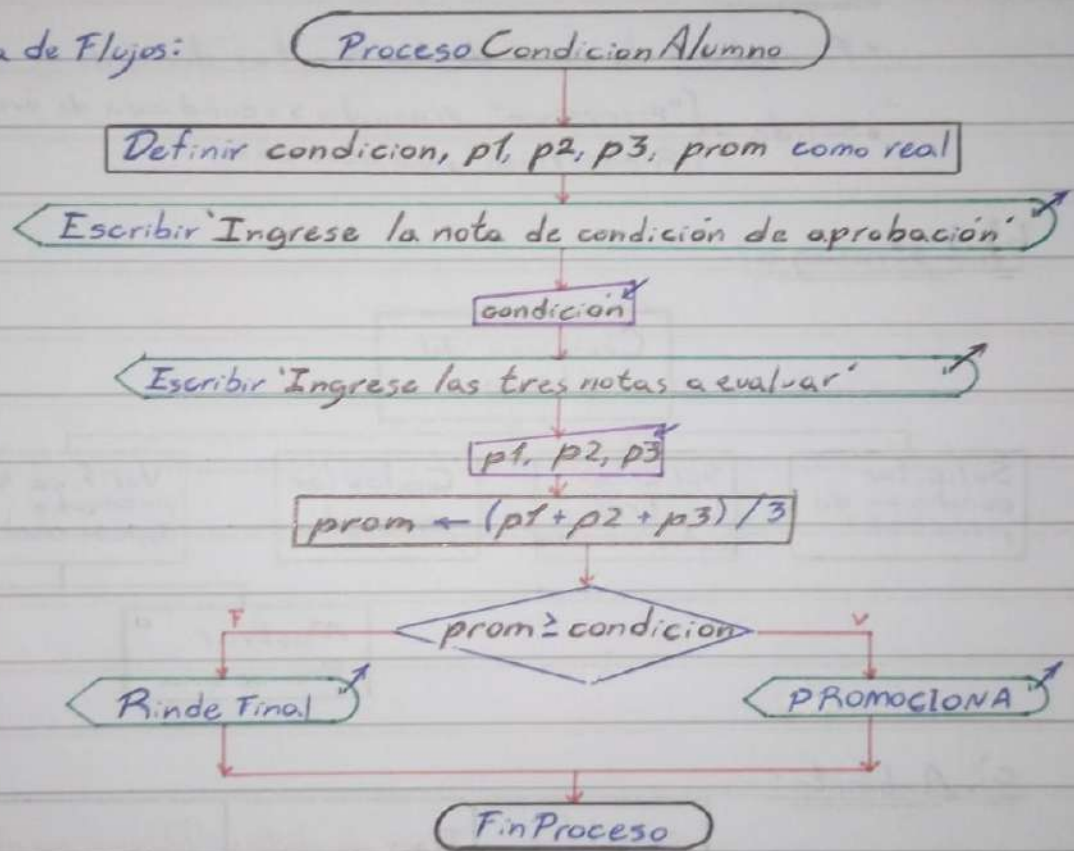 de Flujos:
Proceso Condicion Alumno
Definir condicion, p1, p2, p3, prom como real
Escribir 'Ingrese la nota de condición de aprobación'
condición
Escribir 'Ingrese las tres notas a evaluar'
p1, p2, p3
prom ← (p1 + p2 + p3) / 3
prom ≥ condicion
F
V
Rinde Final
PROMOCIONA
FinProceso